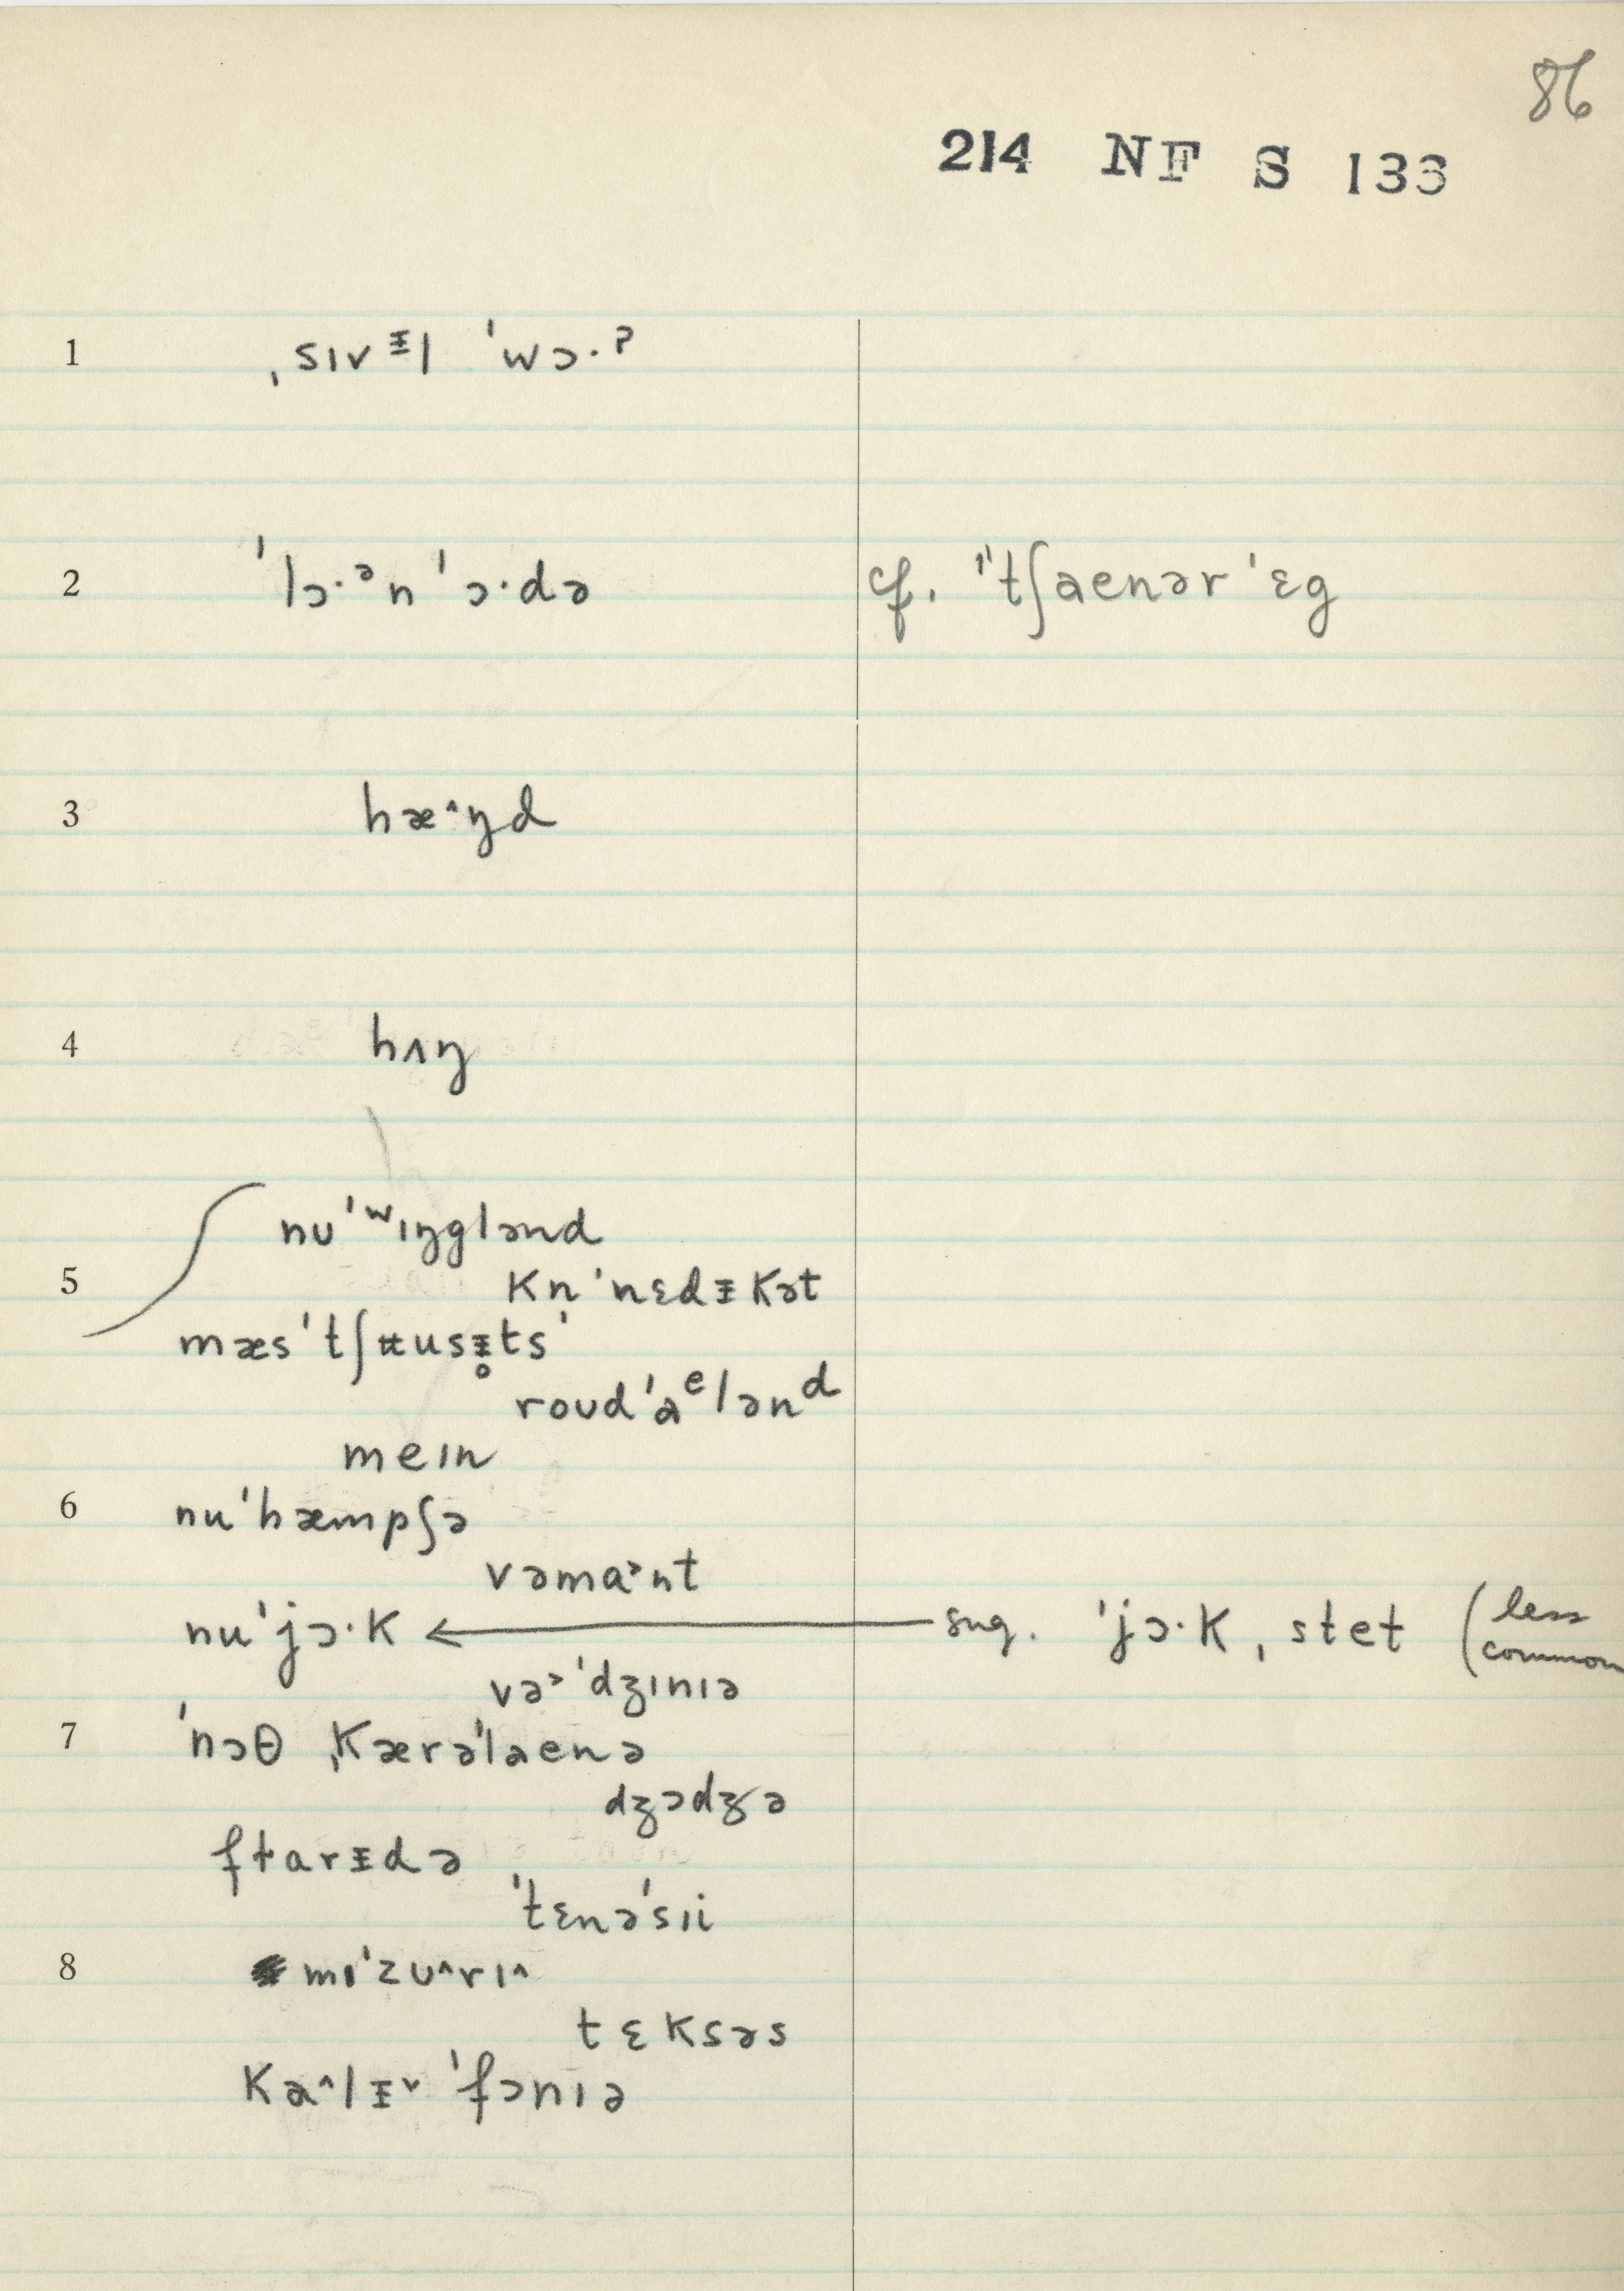 86
214 NF S 133
1 ˌsɪvᵻl ˈwɔ·ɂ
2 ˈlɔ·ᵊn ˈɔ·də cf. ˈˈtʃaenər ˈɛg
3 hæ^ŋd
4 hʌŋ
nʊˈʷɪŋglənd
5 kn̩ˈnɛdᵻkət
mæsˈtʃʉusᵻ̥tsˈ
roʊdˈaᵉlənᵈ
meɪn
6 nuˈhæmpʃə
vəma˃nt
nuˈjɔ·k ← sug. ˈjɔ·k, stet (less common
və˃ˈdʒɪnɪə
7 ˈnɔθ ˌkærəˈlaenə
dʒɔdʒə
flarᵻdə
ˈtɛnəˈsɪi
8 mɪˈzʊ^rɪ^
tɛksəs
ka^lᵻˇˈfɔnɪə